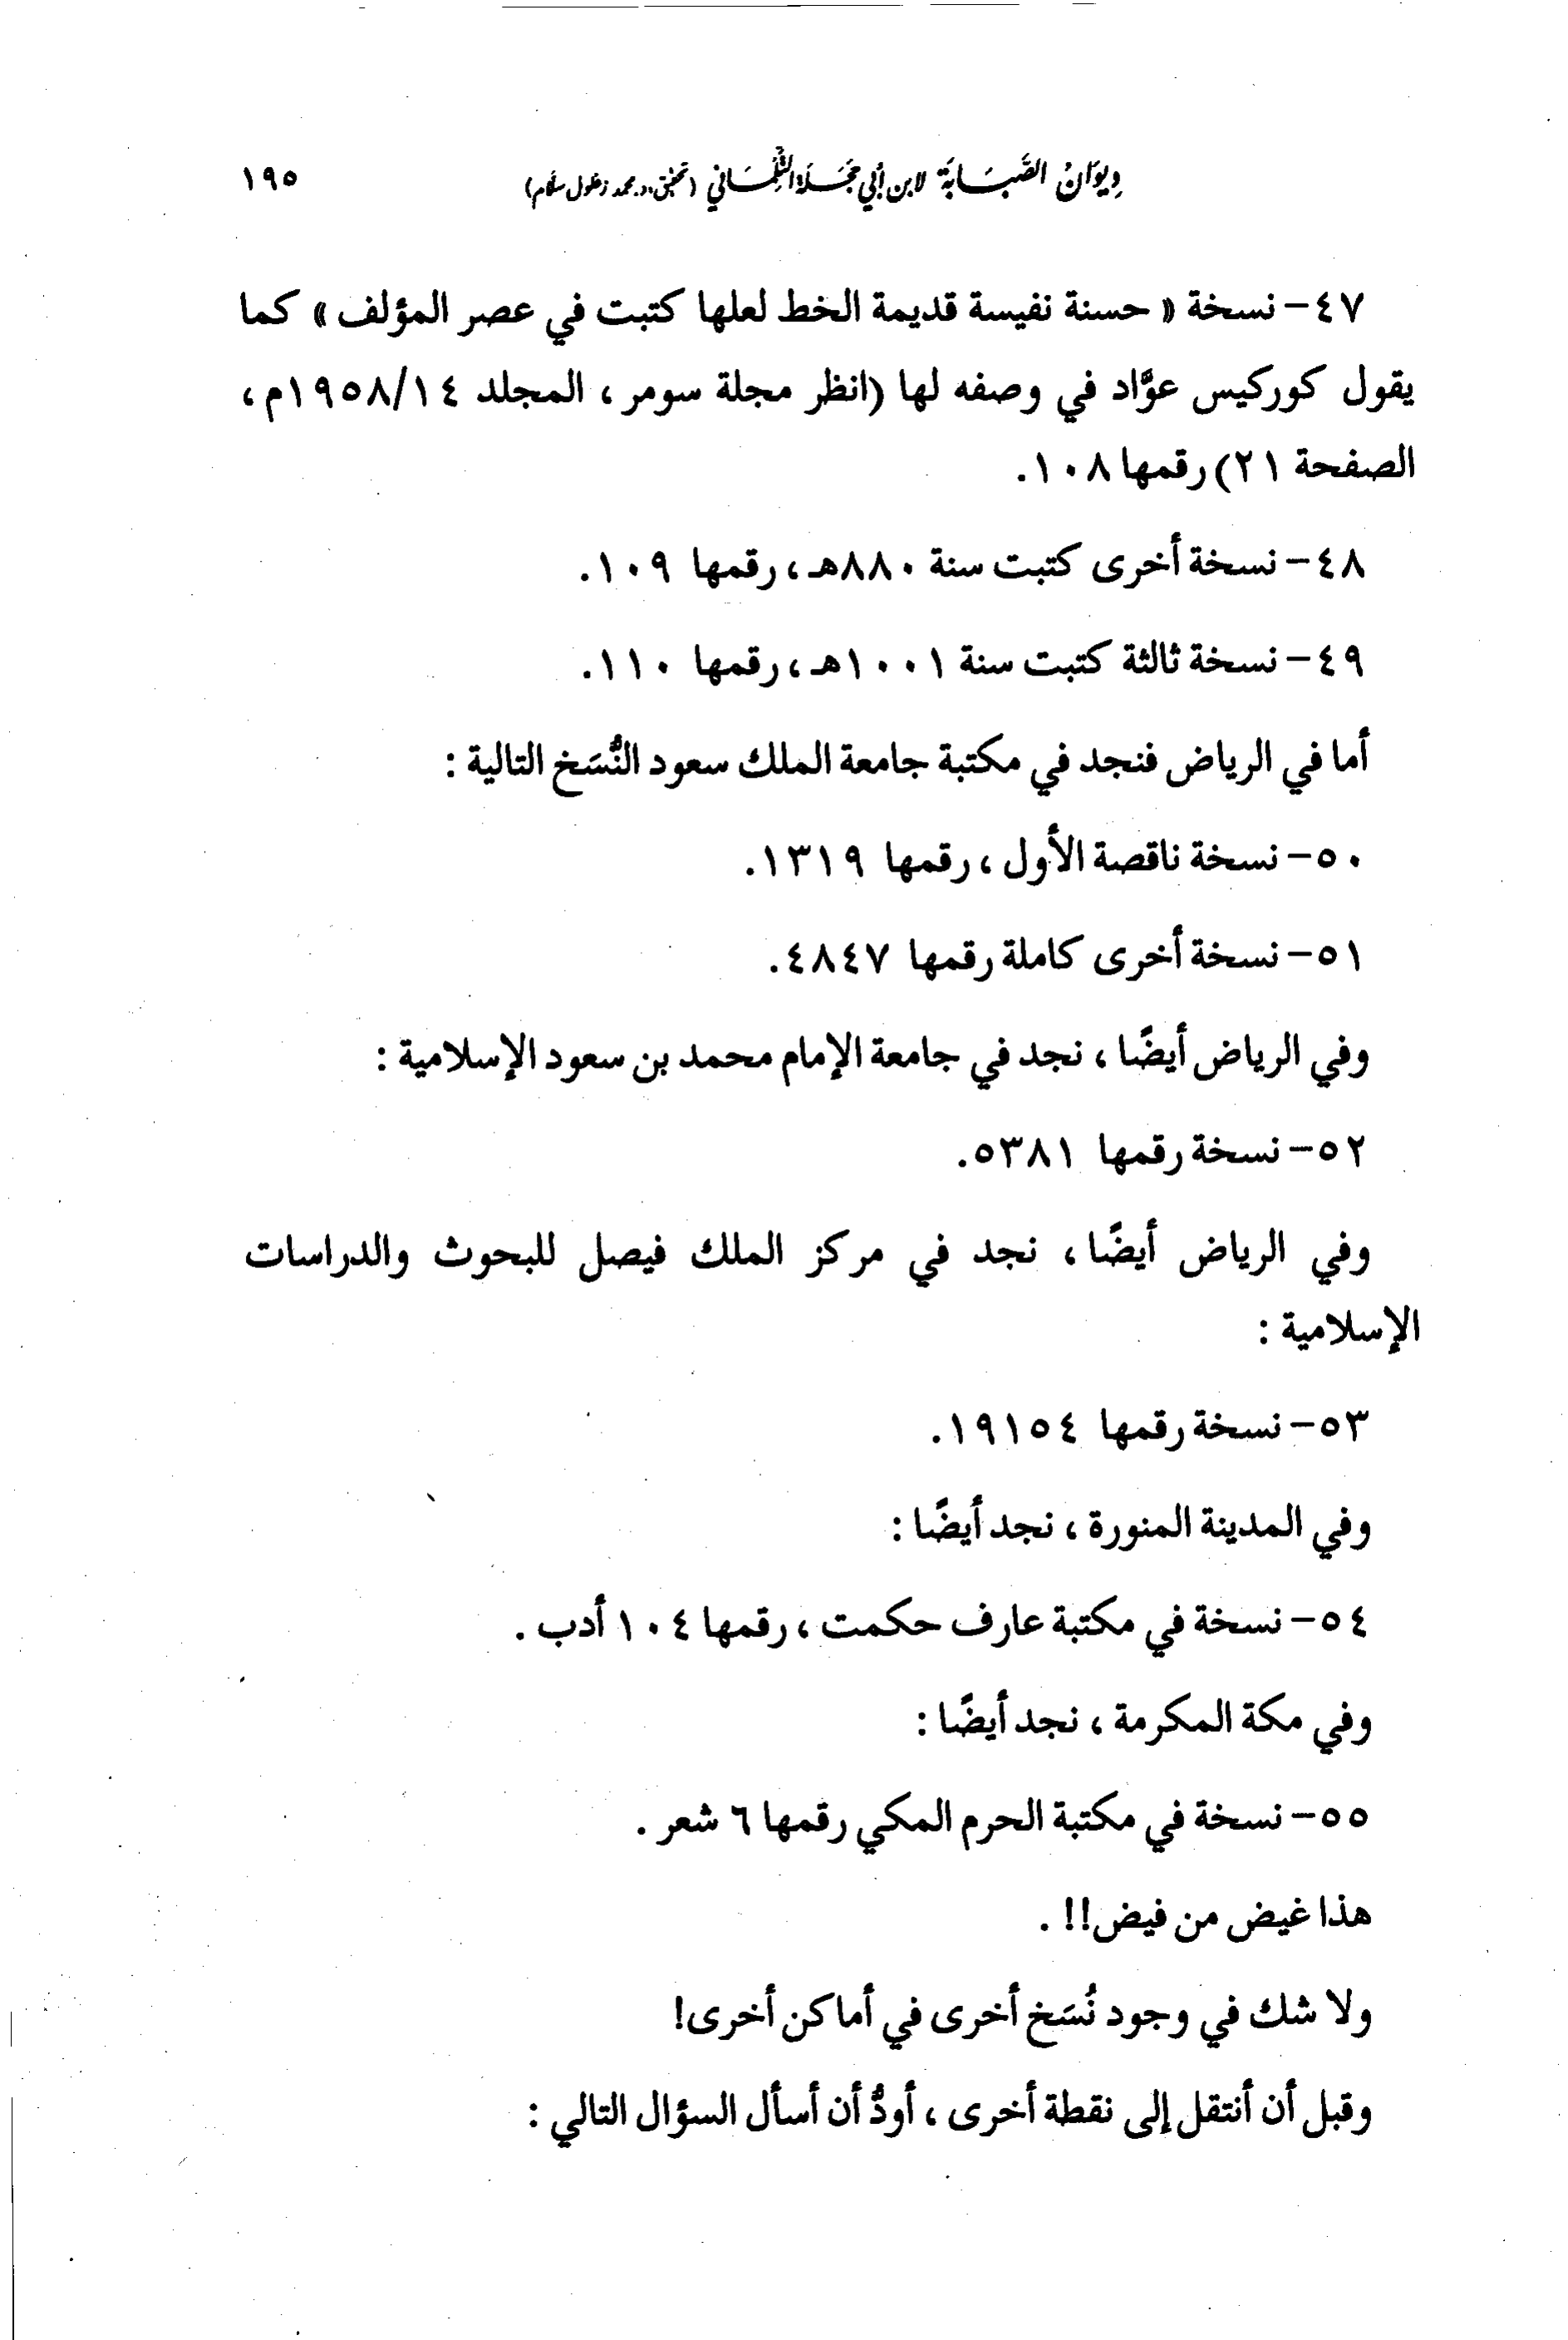 ديوَانُ الصَّبَابَة لابن أبي حَجَلَة التِّلِمْسَاني (تحقيق د. محمد زغلول سلام) ١٩٥
٤٧- نسخة « حسنة نفيسة قديمة الخط لعلها كتبت في عصر المؤلف » كما
يقول كوركيس عوَّاد في وصفه لها (انظر مجلة سومر ، المجلد ١٩٥٨/١٤م ،
الصفحة ٢١) رقمها ١٠٨.
٤٨- نسخة أخرى كتبت سنة ٨٨٠هـ ، رقمها ١٠٩.
٤٩- نسخة ثالثة كتبت سنة ١٠٠١هـ ، رقمها ١١٠.
أما في الرياض فنجد في مكتبة جامعة الملك سعود النُّسَخ التالية :
٥٠- نسخة ناقصة الأول ، رقمها ١٣١٩.
٥١- نسخة أخرى كاملة رقمها ٤٨٤٧.
وفي الرياض أيضًا ، نجد في جامعة الإمام محمد بن سعود الإسلامية :
٥٢- نسخة رقمها ٥٣٨١.
وفي الرياض أيضًا ، نجد في مركز الملك فيصل للبحوث والدراسات
الإسلامية :
٥٣- نسخة رقمها ١٩١٥٤.
وفي المدينة المنورة ، نجد أيضًا :
٥٤- نسخة في مكتبة عارف حكمت ، رقمها ١٠٤ أدب .
وفي مكة المكرمة ، نجد أيضًا :
٥٥- نسخة في مكتبة الحرم المكي رقمها ٦ شعر .
هذا غيض من فيض!! .
ولا شك في وجود نُسَخ أخرى في أماكن أخرى!
وقبل أن أنتقل إلى نقطة أخرى ، أودُّ أن أسأل السؤال التالي :